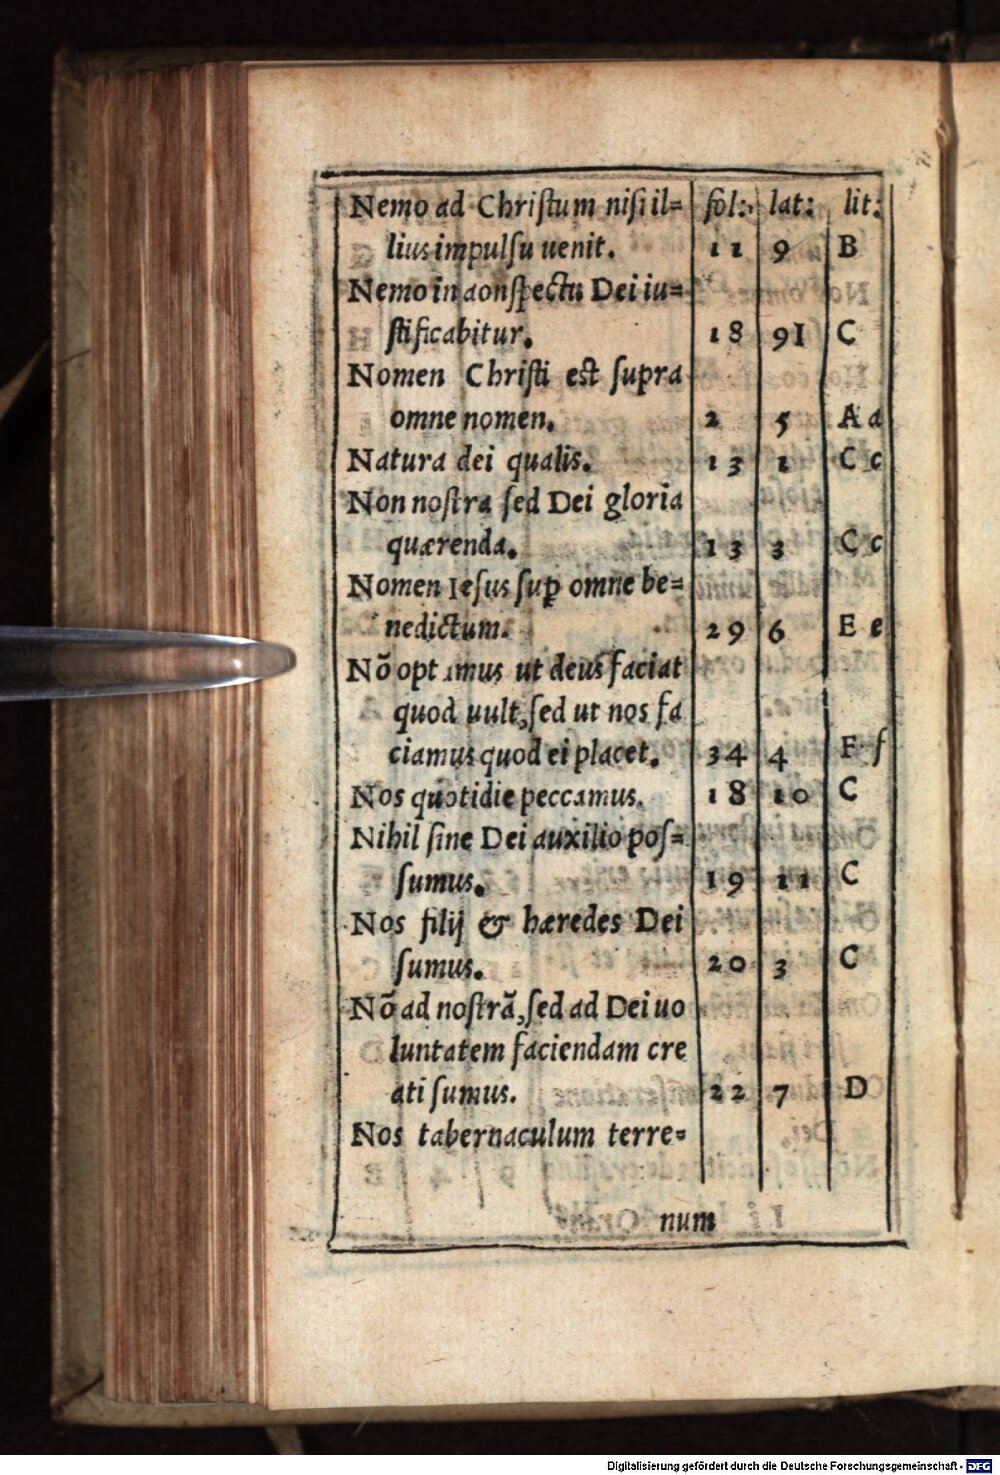 Nemo ad Chriſtum niſi il= fol: lat: lit:
lius impulſu uenit. 11 9 B
Nemo in aonſpectu Dei iu=
ſtificabitur. 18 91 C
Nomen Chriſti est ſupra
omne nomen. 2 5 A a
Natura dei qualis. 13 1 C c
Non noſtra ſed Dei gloria
quærenda. 13 3 C c
Nomen Ieſus ſup omne be=
nedictum. 29 6 E e
Nõ optamus ut deus faciat
quod uult, ſed ut nos fa
ciamus quod ei placet. 34 4 F f
Nos quotidie peccamus. 18 10 C
Nihil ſine Dei auxilio poſ=
ſumus. 19 11 C
Nos filij & hæredes Dei
ſumus. 20 3 C
Nõ ad noſtrã, ſed ad Dei uo
luntatem faciendam cre
ati ſumus. 22 7 D
Nos tabernaculum terre=
num
Digitalisierung gefördert durch die Deutsche Forschungsgemeinschaft - DFG